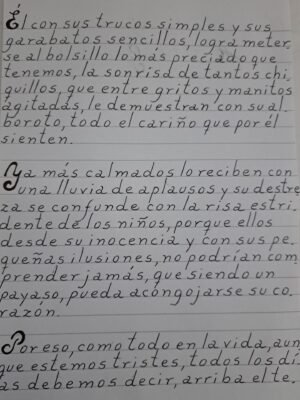 Él con sus trucos simples y sus
garabatos sencillos, logra meter,
se al bolsillo lo más preciado que
tenemos, la sonrisa de tantos chi,
quillos, que entre gritos y manitos
agitadas, le demuestran con su al,
boroto, todo el cariño que por él
sienten.
Ya más calmados lo reciben con
una lluvia de aplausos y su destre
za se confunde con la risa estri,
dente de los niños, porque ellos
desde su inocencia y con sus pe,
queñas ilusiones, no podrían com,
prender jamás, que siendo un
payaso, pueda acongojarse su co,
razón.
Por eso, como todo en la vida, aun,
que estemos tristes, todos los dí,
as debemos decir, arriba el te.